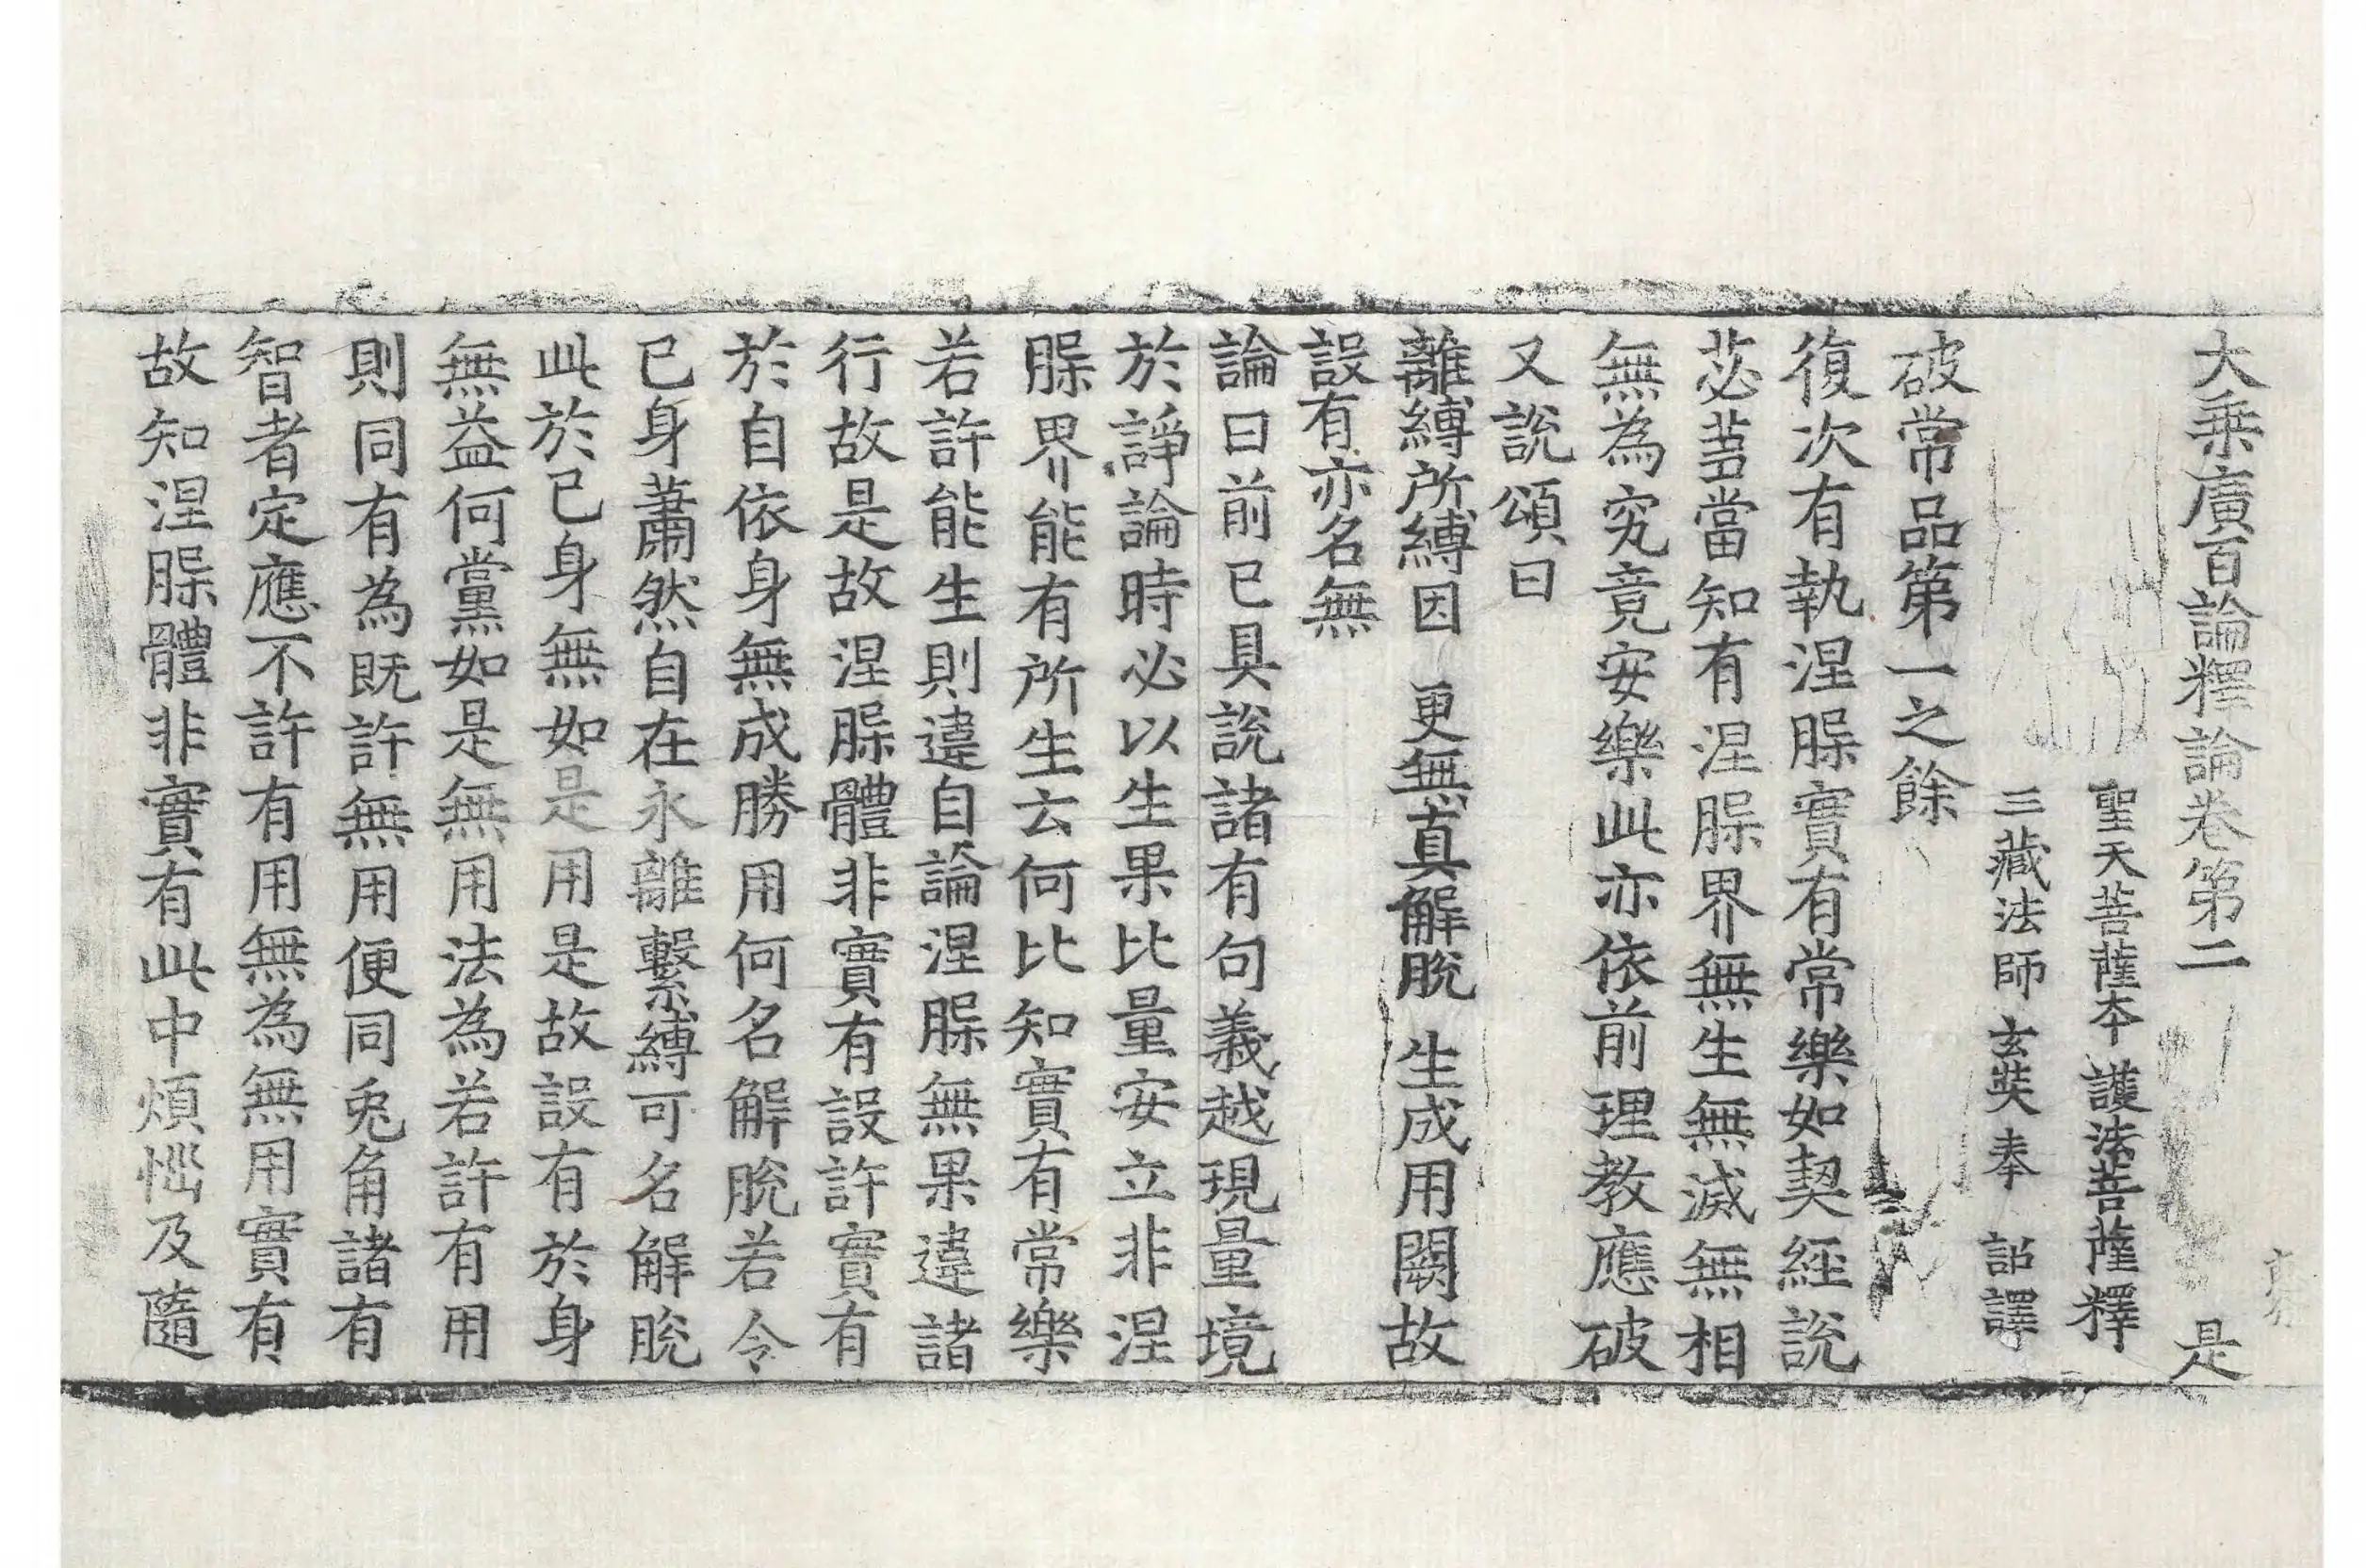 大乗廣百論釋論卷第二 是
聖天菩薩本 護法菩薩釋
三藏法師 玄奘 奉 詔譯
破常品第一之餘
復次有執涅槃實有常樂如契經說
苾蒭當知有涅槃界無生無滅無相
無為究竟安樂此亦依前理教應破
又說頌曰
離縛所縛因 更無真解脫 生成用闕故
設有亦名無
論曰前已具說諸有句義越現量境
於諍論時必以生果比量安立非涅
槃界能有所生云何比知實有常樂
若許能生則違自論涅槃無果違諸
行故是故涅槃體非實有設許實有
於自依身無成勝用何名解脫若令
已身蕭然自在永離繫縛可名解脫
此於已身無如是用是故設有於身
無益何黨如是無用法為若許有用
則同有為既許無用便同兎角諸有
智者定應不許有用無為無用實有
故知涅槃體非實有此中煩惱及隨